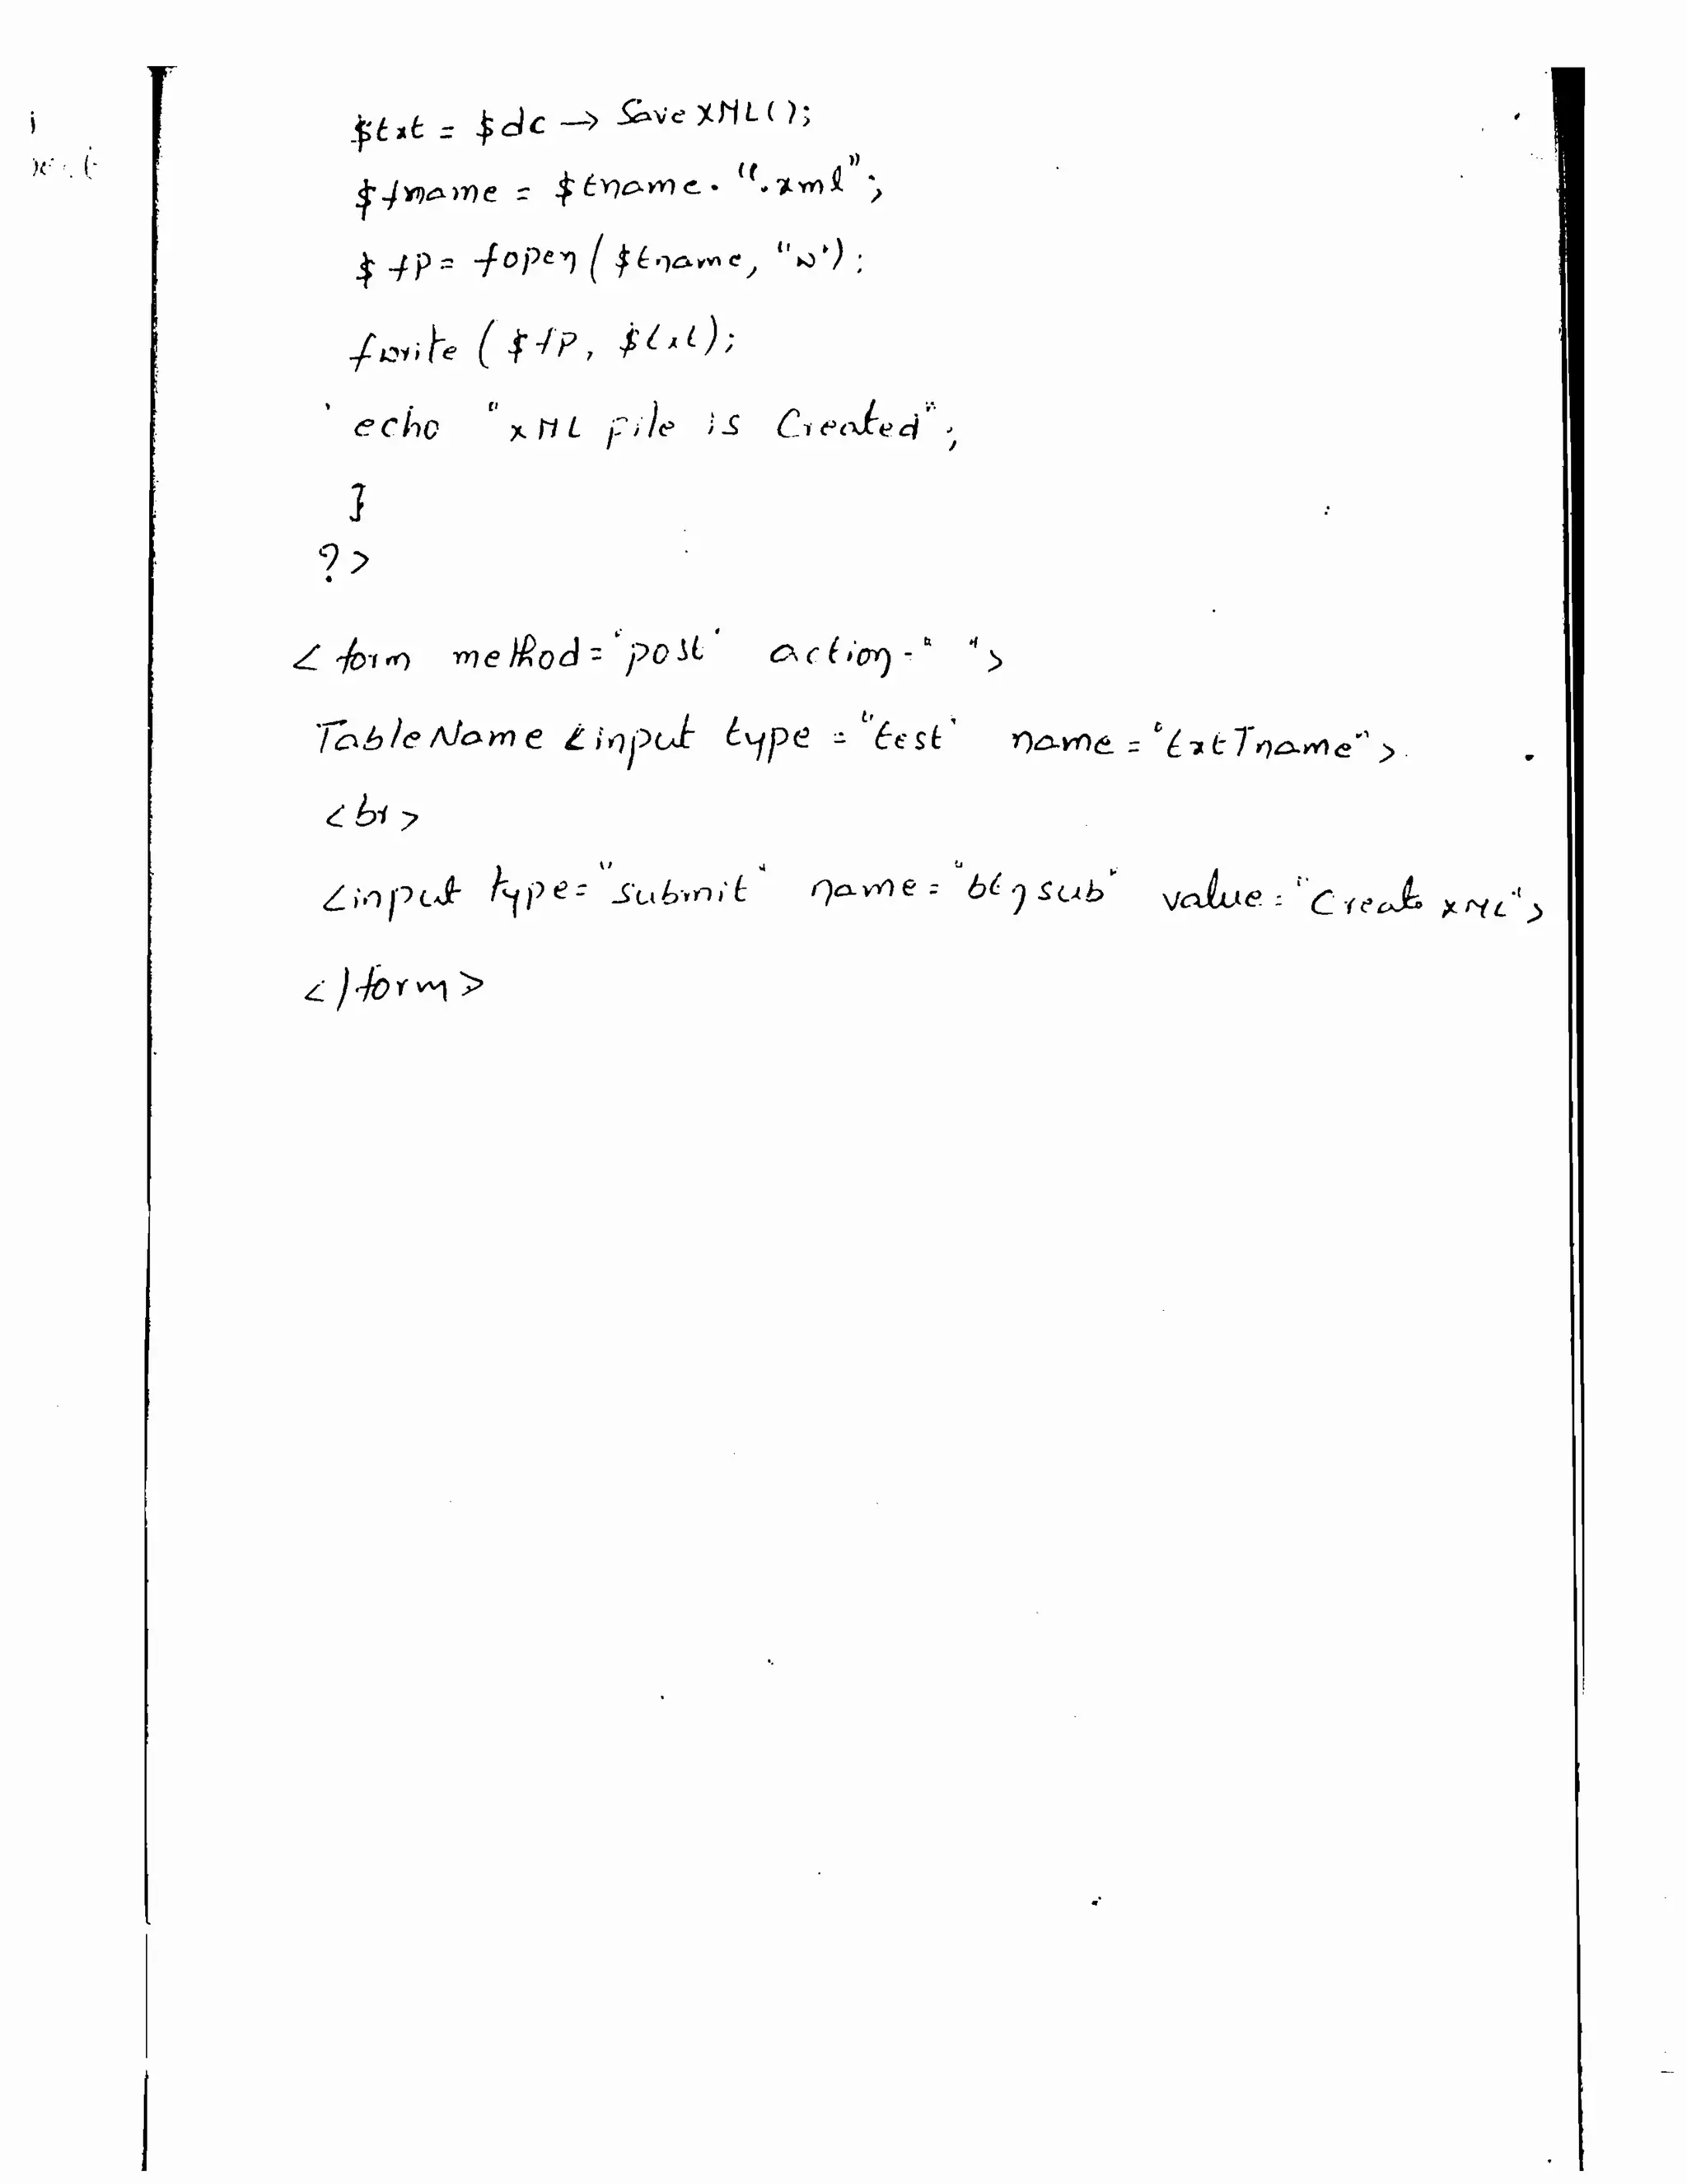 $txt = $dc → SaveXML();
$fname = $tname. ".xml";
$fp = fopen($tname, "w");
fwrite ($fp, $txt);
echo "XML File is Created";
}
?>
< form method="post" action=" ">
TableName <input type = "test" name = "txtTname">
<br>
<input type="submit" name="btnsub" value="Create XML">
</form>